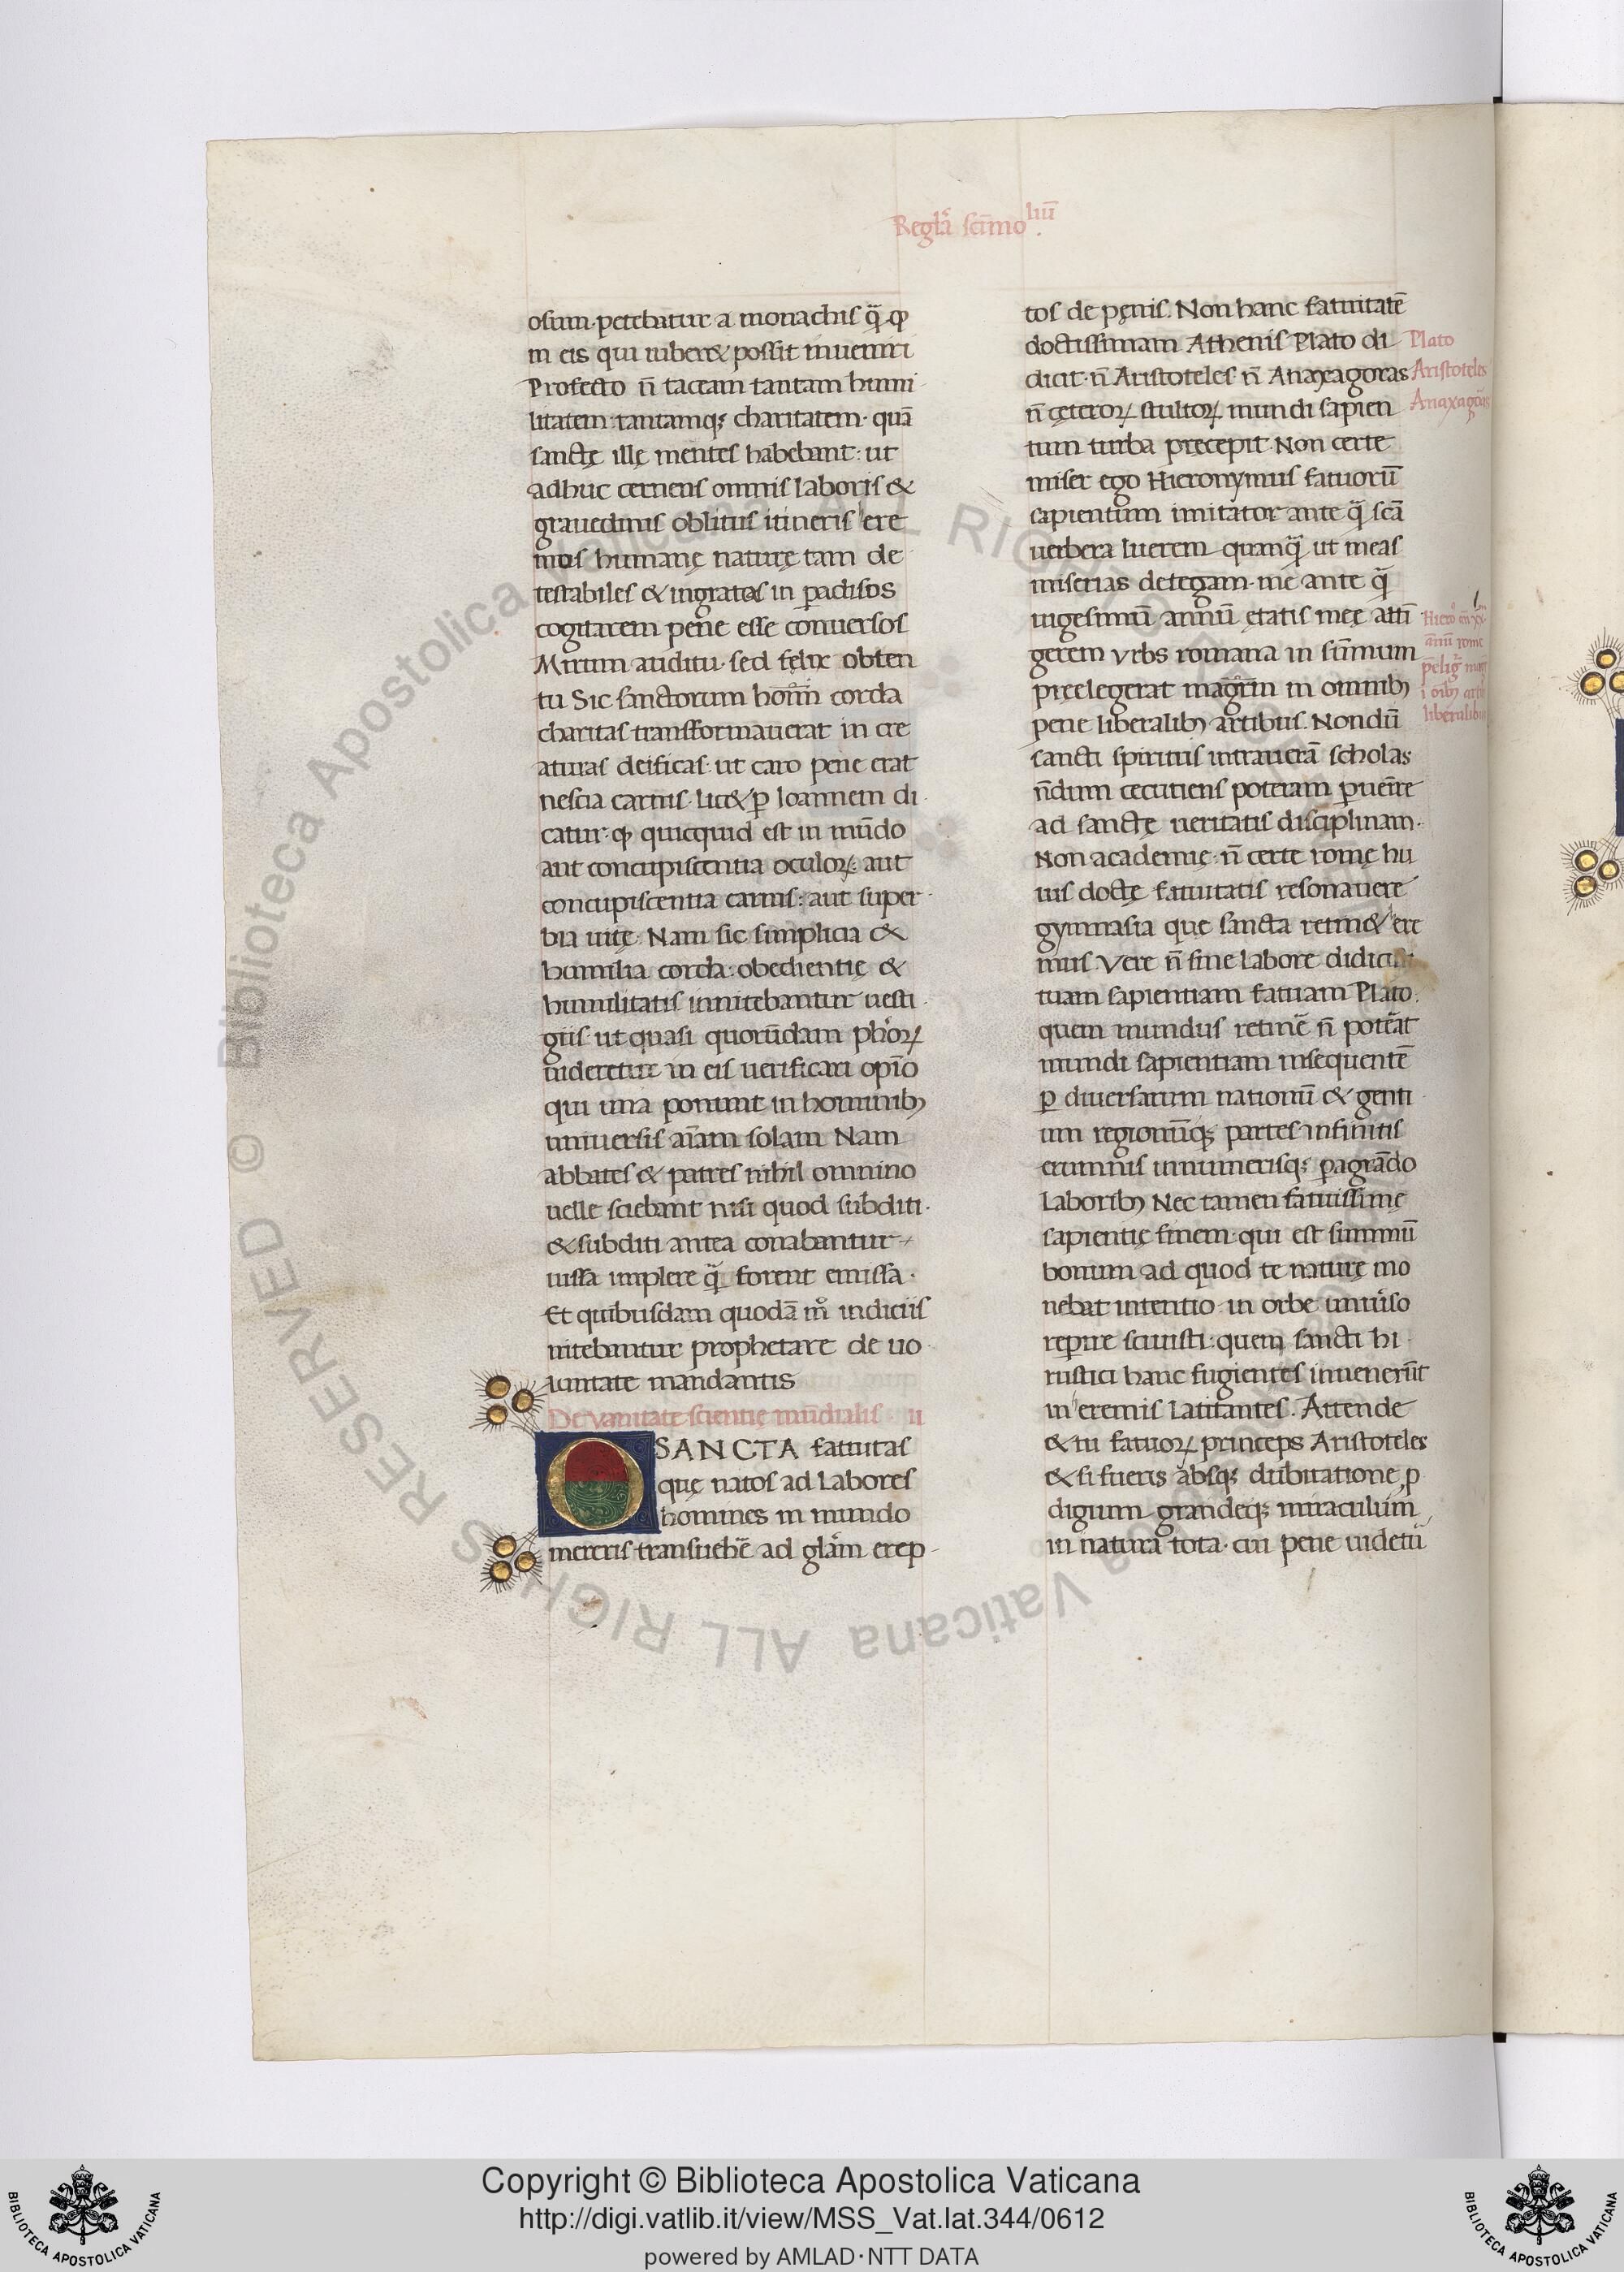 Regl̃a sc̃imoliũ.
osum·petebatur a monachis q̃·ꝙ
in eis qui iuber&possit inueniri
Profecto ñ taceam tantam humi
litatem:tantamqꝫ charitatem·quã
sanctę illę mentes habebant: ut
adhuc cernens omnis laboris &
grauedinis oblitus itineris here
mos humanę naturę tam de
testabiles & ingratas in ꝑadisos
cogitarem pene esse conuersos
Mirum auditu·sed fęlix obten
tu Sic sanctorum hom̃n corda
charitas transformauerat in cre
aturas deificas·ut caro pene erat
nescia carnis·lic&ꝑ Ioannem di
catur·ꝙ quicquid est in mũdo
aut concupiscentia oculoꝝ: aut
concupiscentia carnis:aut super
bia uitę Nam sic simplicia &
humilia corda:obedientię &
humilitatis innitebantur uesti
giis·ut quasi quorũdam ph̃oꝝ
uideretur in eis uerificari opĩo
qui una ponunt in hominibꝫ
uniuersis aĩam solam Nam
abbates & patres nihil omnino
uelle sciebant nisi quod subditi·
& subditi antea conabantur
iussa implere q̃ forent emissa·
Et quibusdam quodã m̊ indiciis
nitebantur prophetare de uo
luntate mandantis
De vanitate scientię mũdialis II
O SANCTA fatuitas
quę natos ad labores
homines in mundo
mereris transuehẽ ad glãm erep
tos de pęnis. Non hanc fatuitatẽ
doctissimam Athenis Plato di
dicit·ñ Aristoteles ñ Anaxagoras
ñ cęteroꝝ stultoꝝ mundi sapien
tum turba pręcepit·Non certe
miser ego Hieronymus fatuorũ
sapientum imitator ante q̃ scã
uerbera luerem quanq̃ ut meas
miserias detegam·me ante q̃
uigesimũ annũ ętatis meę atti
gerem vrbs romana in sũmum
pręelegerat mag̃rm in omnibꝫ
pene liberalibꝫ artibus. Nondũ
sancti spiritus intrauerã scholas
ñdum cecutiens poteram ꝑueñre
ad sanctę ueritatis disciplinam·
Non academię·ñ certe romę hu
ius doctę fatuitatis resonauere
gymnasia que sancta retin& here
mus·Vere ñ sine labore didicisti
tuam sapientiam fatuam Plato·
quem mundus retinẽ ñ potẽat
mundi sapientiam insequentẽ
ꝑ diuersarum nationũ & genti
um regionũqꝫ partes infinitis
erumnis innumerisqꝫ ꝑagrãdo
laboribꝫ Nec tamen fatuissimę
sapientię finem·qui est summũ
bonum ad quod te naturę mo
nebat intentio·in orbe uniũso
reꝑire sciuisti:quem sancti hi
rustici hanc fugientes inuenerũt
in heremis latitantes. Attende
& tu fatuoꝝ princeps Aristoteles
& si fueris absqꝫ dubitatione ꝓ
digium grandeqꝫ miraculum
in natura tota·cui pene uidetũ
Plato
Aristoteles
Anaxagoras
annũ rome
liberalibus
Copyright © Biblioteca Apostolica Vaticana
http://digi.vatlib.it/view/MSS_Vat.lat.344/0612
powered by AMLAD·NTT DATA
BIBLIOTECA APOSTOLICA VATICANA
BIBLIOTECA APOSTOLICA VATICANA
© Biblioteca Apostolica Vaticana ALL RIGHTS RESERVED